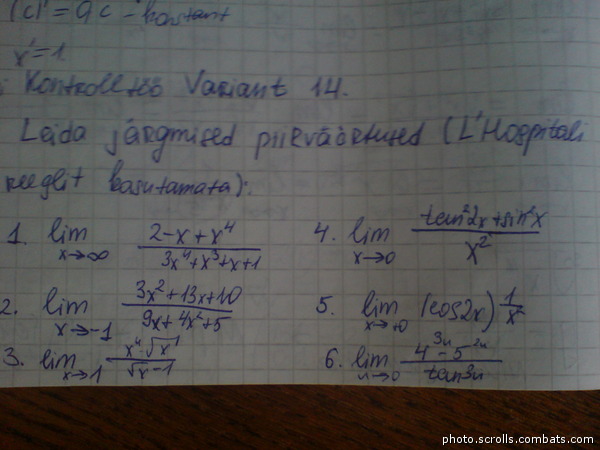 (c)' = 0 c - konstant
x' = 1.
Kontrolltöö Variant 14.
Leida järgmised piirväärtused (L'Hospitali
reeglit kasutamata):
1. lim x→∞ (2-x+x⁴)/(3x⁴+x³+x+1)
4. lim x→0 (tan²2x+sin²x)/x²
2. lim x→-1 (3x²+13x+10)/(9x+4x²+5)
5. lim x→+0 (cos2x)^(1/x²)
3. lim x→1 (x⁴·√x)/(√x-1)
6. lim x→0 (4³ˣ-5²ˣ)/tan3x
photo.scrolls.combats.com